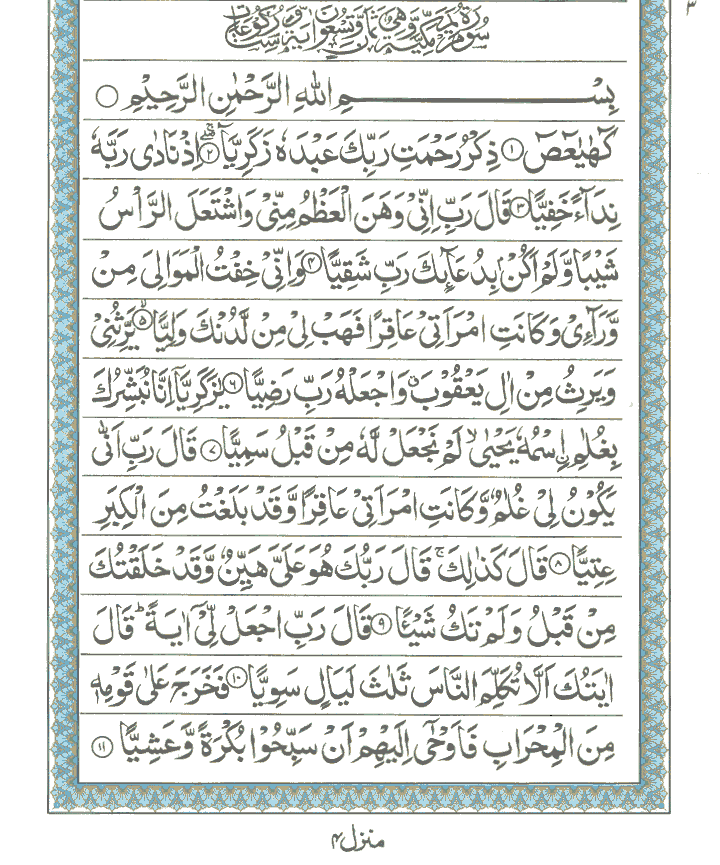 ۳
سُوْرَةُ مَرْيَمَ مَكِّيَّةٌ وَّهِيَ ثَمَانٌ وَّتِسْعُوْنَ اٰيَةً وَّسِتُّ رُكُوْعَاتٍ
بِسْمِ اللّٰهِ الرَّحْمٰنِ الرَّحِيْمِ ○
كٓهٰيٰعٓصٓ ۝۱ ذِكْرُ رَحْمَتِ رَبِّكَ عَبْدَهٗ زَكَرِيَّا ۝۲ اِذْ نَادٰى رَبَّهٗ
نِدَآءً خَفِيًّا ۝۳ قَالَ رَبِّ اِنِّيْ وَهَنَ الْعَظْمُ مِنِّيْ وَاشْتَعَلَ الرَّاْسُ
شَيْبًا وَّلَمْ اَكُنْۢ بِدُعَآئِكَ رَبِّ شَقِيًّا ۝۴ وَاِنِّيْ خِفْتُ الْمَوَالِيَ مِنْ
وَّرَآءِيْ وَكَانَتِ امْرَاَتِيْ عَاقِرًا فَهَبْ لِيْ مِنْ لَّدُنْكَ وَلِيًّا ۝۵ يَّرِثُنِيْ
وَيَرِثُ مِنْ اٰلِ يَعْقُوْبَ ۖ وَاجْعَلْهُ رَبِّ رَضِيًّا ۝۶ يٰزَكَرِيَّآ اِنَّا نُبَشِّرُكَ
بِغُلٰمِ ِۨاسْمُهٗ يَحْيٰى ۙ لَمْ نَجْعَلْ لَّهٗ مِنْ قَبْلُ سَمِيًّا ۝۷ قَالَ رَبِّ اَنّٰى
يَكُوْنُ لِيْ غُلٰمٌ وَّكَانَتِ امْرَاَتِيْ عَاقِرًا وَّقَدْ بَلَغْتُ مِنَ الْكِبَرِ
عِتِيًّا ۝۸ قَالَ كَذٰلِكَ ۚ قَالَ رَبُّكَ هُوَ عَلَيَّ هَيِّنٌ وَّقَدْ خَلَقْتُكَ
مِنْ قَبْلُ وَلَمْ تَكُ شَيْـًٔا ۝۹ قَالَ رَبِّ اجْعَلْ لِّيْٓ اٰيَةً ؕ قَالَ
اٰيَتُكَ اَلَّا تُكَلِّمَ النَّاسَ ثَلٰثَ لَيَالٍ سَوِيًّا ۝۱۰ فَخَرَجَ عَلٰى قَوْمِهٖ
مِنَ الْمِحْرَابِ فَاَوْحٰٓى اِلَيْهِمْ اَنْ سَبِّحُوْا بُكْرَةً وَّعَشِيًّا ۝۱۱
منزل۴